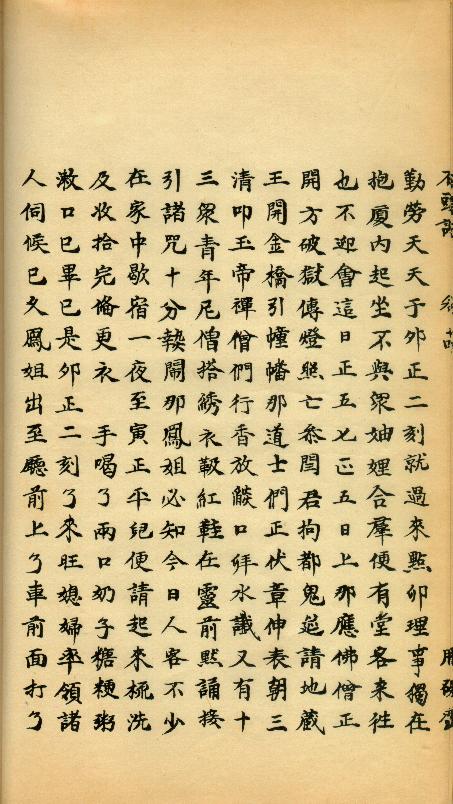 勤勞天天于夘正二刻就過來㸃卯理事獨在
抱廈内起坐不與衆妯娌合羣便有堂客來徃
也不迎會這日正五七正五日上那應佛僧正
開方破獄傳燈照亡叅閻君拘都鬼莚請地藏
王開金橋引幢幡那道士們正伏章伸表朝三
清叩玉帝禪僧們行香放燄口拜水讖又有十
三衆青年尼僧搭綉衣靸紅鞋在靈前黙誦接
引諸咒十分𤍠閙那鳳姐必知今日人客不少
在家中歇宿一夜至寅正平兒便請起來梳洗
及收拾完俻更衣 手喝了兩口奶子糖粳粥
漱口已畢已是夘正二刻了來旺媳婦率領諸
人伺候已久鳳姐出至廳前上了車前面打了